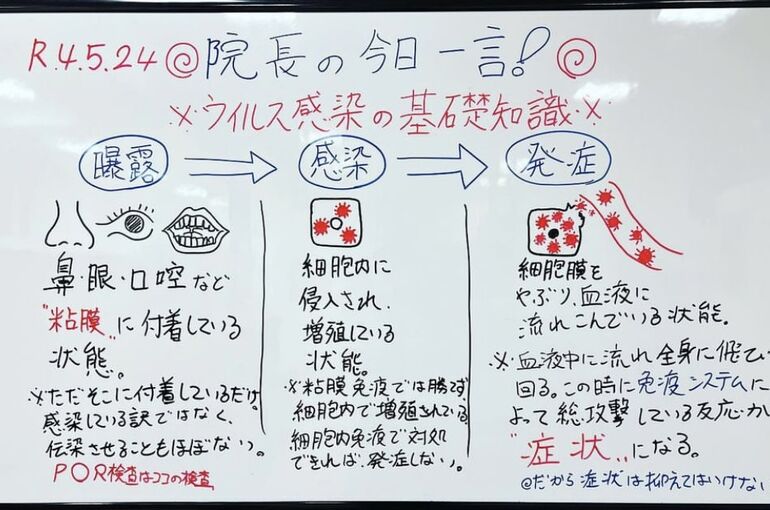 R.4.5.24 院長の今日一言!
※ウイルス感染の基礎知識※
曝露
感染
発症
鼻・眼・口腔など
"粘膜"に付着している
状態。
※ただそこに付着しているだけ。
感染している訳ではなく、
伝染させることもほぼない。
P○R検査はココの検査
細胞内に
侵入され、
増殖している
状態。
※粘膜免疫では勝てず
細胞内で増殖されている。
細胞内免疫で対処
できれば、発症しない。
細胞膜を
やぶり、血液に
流れこんでいる状態。
※血液中に流れ全身に飛て
回る。この時に免疫システムに
よって総攻撃している反応が
"症状"になる。
@だから症状は抑えてはいけない